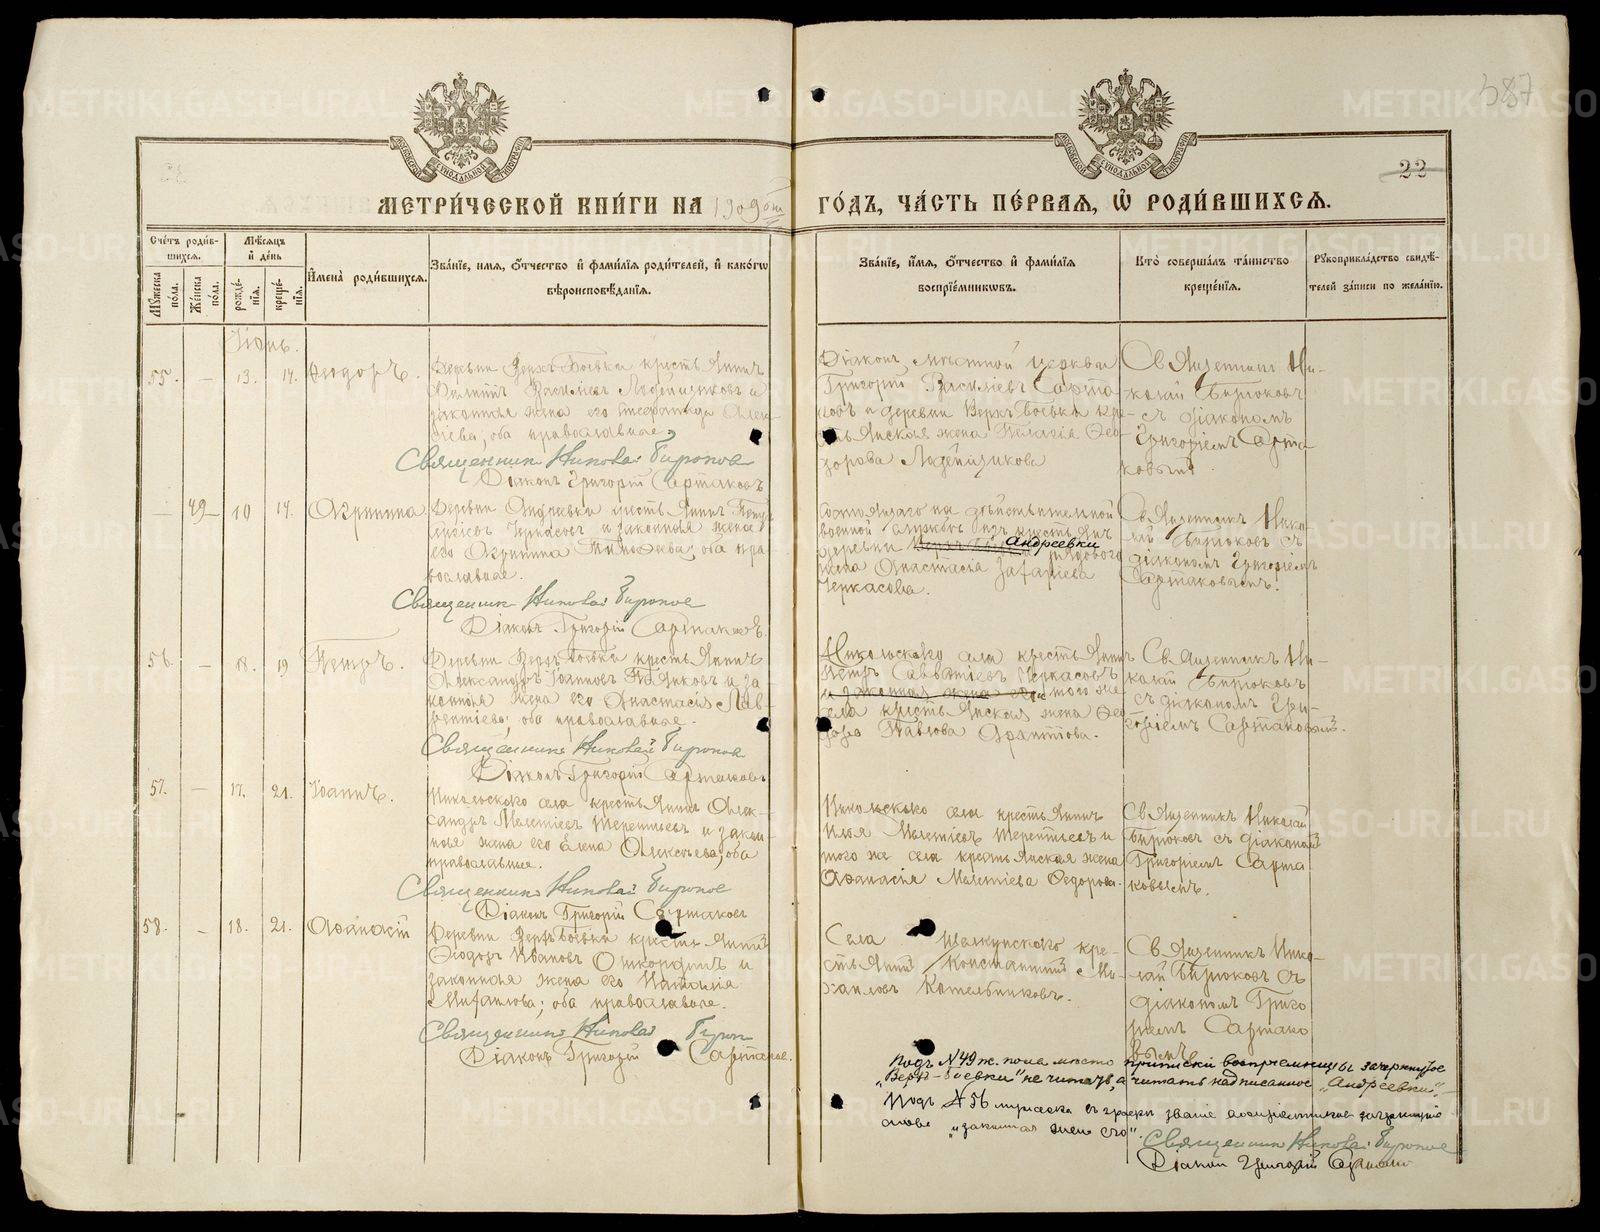 387
22
МЕТРИ́ЧЕСКОЙ КНИ́ГИ НА 1909ый ГО́ДЪ, ЧА́СТЬ ПЕ́РВАЯ, Ѡ РОДИ́ВШИХСЯ.
Сче́тъ роди́в-
шихся.
Му́жеска по́ла.
Же́нска по́ла.
Мѣ́сяцъ и҆ де́нь
рожде́-нїѧ.
креще́-нїѧ.
И҆мена̀ роди́вшихся.
Зва́нїе, и҆́мя, ѻ҆́тчество и҆ фами́лїѧ роди́телей, и҆ како́гѡ
вѣроисповѣ́данїѧ.
Зва́нїе, и҆́мя, ѻ҆́тчество и҆ фами́лїѧ
воспрїе́мникѡвъ.
Кто̀ соверша́лъ та́инство
креще́нїѧ.
Рꙋкоприкла́дство свидѣ́-
телей за́писи по жела́нїю.
Іюнь.
55. — 13. 14. Ѳеодоръ.
Деревни Верхъ-Боевка крестьянинъ
законная жена его
оба православные
Священникъ Николай Бирюковъ
Діаконъ Григорій Сартаковъ
Діаконъ мѣстной церкви
Григорій Васильевъ Сарта-
ковъ и деревни Верхъ-Боевки кре-
стьянская жена Пелагія Ѳео-
дорова
Священникъ Ни-
колай Бирюковъ
съ діакономъ
Григоріемъ Сарта-
ковымъ
— 49 — 10 14. Агрипина
Деревни Андреевки крестьянинъ
Черкасовъ и законная жена
его Агрипина оба пра-
вославные.
Священникъ Николай Бирюковъ
Діаконъ Григорій Сартаковъ.
Состоящаго на дѣйствительной
военной службѣ изъ крестьянъ
деревни Андреевки рядового
жена Анастасія Захаріева
Черкасова.
Священникъ Нико-
лай Бирюковъ съ
діакономъ Григоріемъ
Сартаковымъ.
56. — 18. 19 Петръ.
Деревни Верхъ-Боевка крестьянинъ
Александръ Іоанновъ и за-
конная жена его Анастасія Лав-
рентіева; оба православные.
Священникъ Николай Бирюковъ
Діаконъ Григорій Сартаковъ
Никольскаго села крестьянинъ
Петръ Савватіевъ Черкасовъ
и законная жена его того же
села крестьянская жена Ѳео-
дора Павлова
Священникъ Ни-
колай Бирюковъ
съ діакономъ Гри-
горіемъ Сартаковымъ.
57. — 17. 21. Іоаннъ.
Никольскаго села крестьянинъ Алек-
сандръ Мелетіевъ Терентьевъ и закон-
ная жена его Елена Алексѣева; оба
православные.
Священникъ Николай Бирюковъ
Діаконъ Григорій Сартаковъ
Никольскаго села крестьянинъ
Илья Мелетіевъ Терентьевъ и
того же села крестьянская жена
Аѳанасія Мелетіева Ѳедорова.
Священникъ Николай
Бирюковъ съ діакономъ
Григоріемъ Сарта-
ковымъ.
58. — 18. 21. Аѳанасій
Деревни Верхъ-Боевка крестьянинъ
Ѳеодоръ Ивановъ и
законная жена его Наталія
Михаилова; оба православные.
Священникъ Николай Бирюк
Діаконъ Григорій Сартаковъ.
Села Щелкунскаго кре-
стьянинъ Константинъ Ми-
хаиловъ Котельниковъ.
Священникъ Нико-
лай Бирюковъ съ
діакономъ Григо-
ріемъ Сартако-
вымъ
Подъ № 49 ж. пола вмѣсто приписки воспріемницы зачеркнутое
„Верхъ-Боевки" не читать, а читать надписанное „Андреевки".
Подъ № 56 въ графѣ званіе зачеркнутыя
слова „законная жена его".
Священникъ Николай Бирюковъ
Діаконъ Григорій Сартаковъ
METRIKI.GASO-URAL.RU